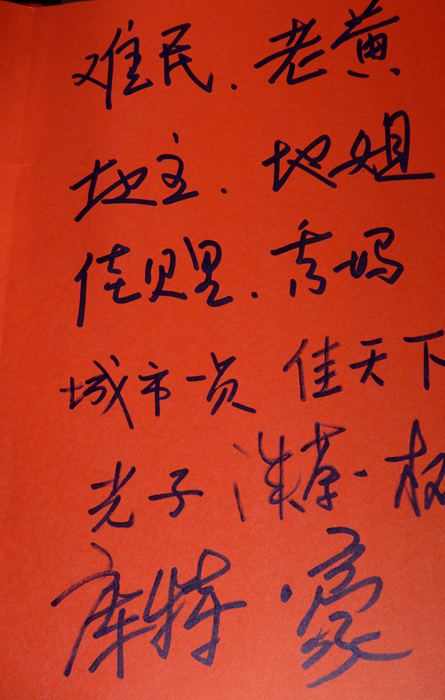 难民.老黄
地主.地姐
佳贝里.秀妈
城市一员 佳天下
光子
库特.豪